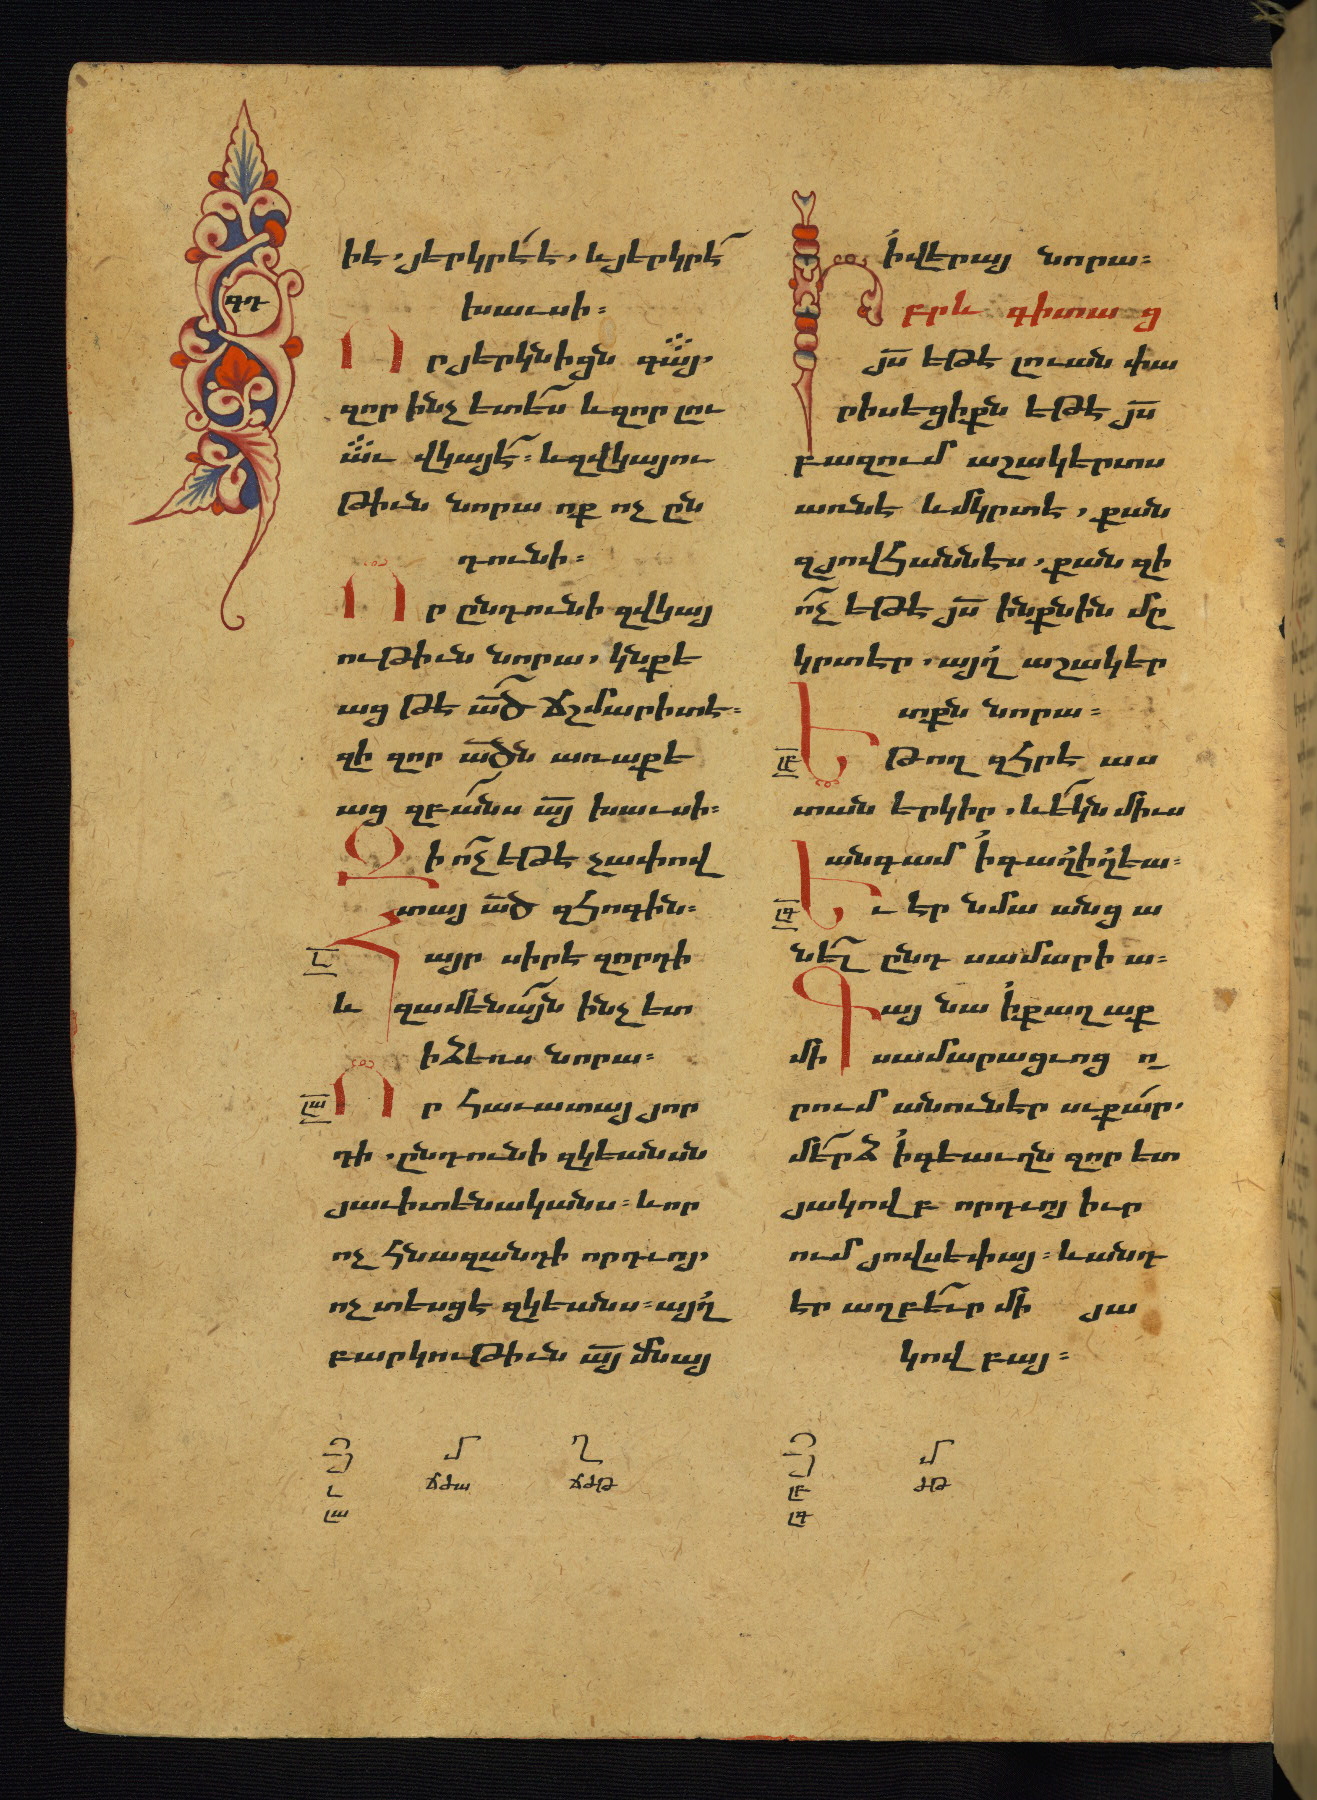 գդ
իէ, յերկրէ է, և յերկրէ
խաւսի։
Որ յերկնիցն գա̈յ,
զոր ինչ ետես և զոր լու
ա̈ւ վկայէ։ և զվկայու
թիւն նորա ոք ոչ ըն
դունի։
Որ ընդունի զվկայ
ութիւն նորա, կնքե
աց թէ ա՟ծ ճշմարիտ է։
զի զոր ա՟ծն առաքե
աց զբանս ա՟յ խաւսի։
Զի ո՛չ եթէ չափով
տայ ա՟ծ զհոգին։
լ
Հայր սիրէ զորդի
և զամենայն ինչ ետ
ի ձեռս նորա։
լա
Որ հաւատայ յոր
դի, ընդունի զկեանսն
յաւիտենականս։ և որ
ոչ հնազանդի որդւոյ,
ոչ տեսցէ զկեանս։ այղ
բարկութիւն ա՟յ մնայ
ի վերայ նորա։
Իբրև գիտաց
յ՟ս եթէ լուան փա
րիսեցիքն եթէ յ՟ս
բազում աշակերտս
առնէ և մկրտէ, քան
զյովհաննէս, քան զի
ո՛չ եթէ յ՟ս ինքնին մը
կրտէր, այղ աշակեր
տքն նորա։
լբ
Եթող զհրէ աս
տան երկիր, և եկն միւս
անգամ ի գաղիղեա։
լգ
Եւ էր նմա անց ա
նել ընդ սամարի ա։
Գայ նա ի քաղաք
մի սամարացւոց ո
րում անուն էր սւքար,
մերձ ի գեաւղն զոր ետ
յակովբ որդւոյ իւր
ում յովսեփայ։ և անդ
էր աղբեւր մի յա
կովբայ։
յ
լ
լա
մ
ճձա
ղ
ճձթ
յ
լբ
լգ
մ
ձթ